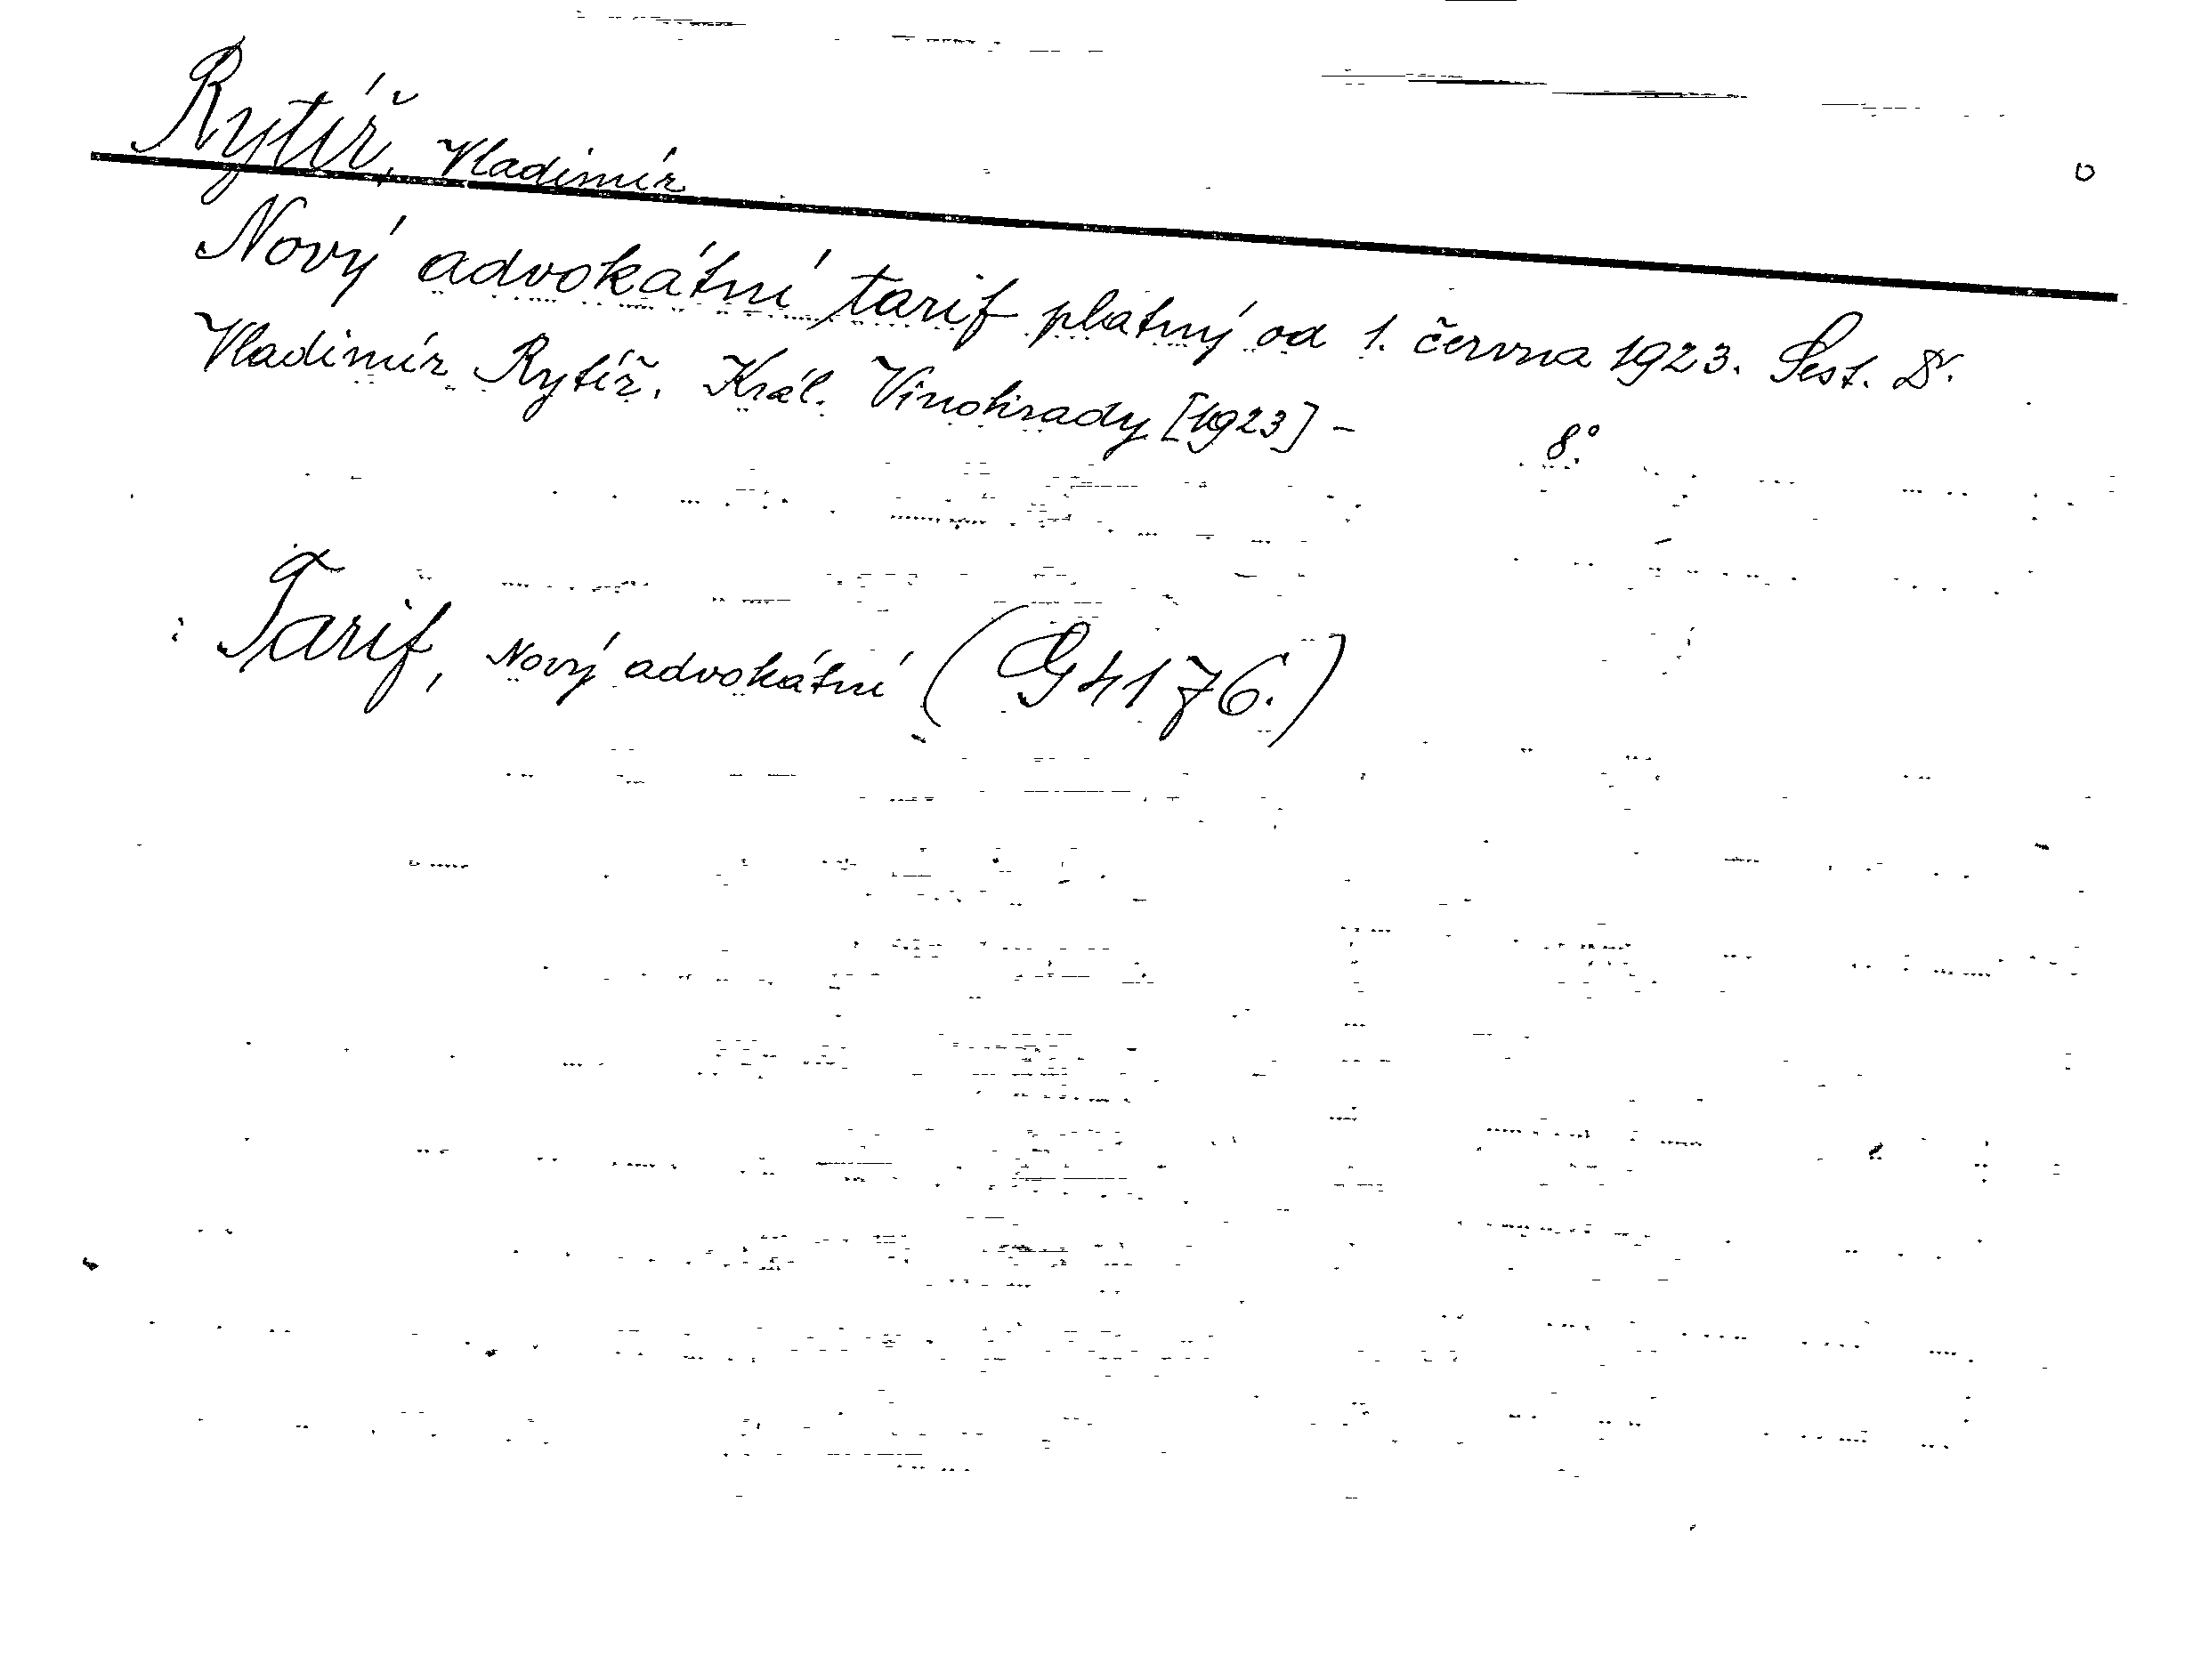 Rytíř, Vladimír
Nový advokátní tarif platný od 1. června 1923. Sest. Dr.
Vladimír Rytíř. Král. Vinohrady [1923] - 8°.
: Tarif, Nový advokátní (G 4176.)